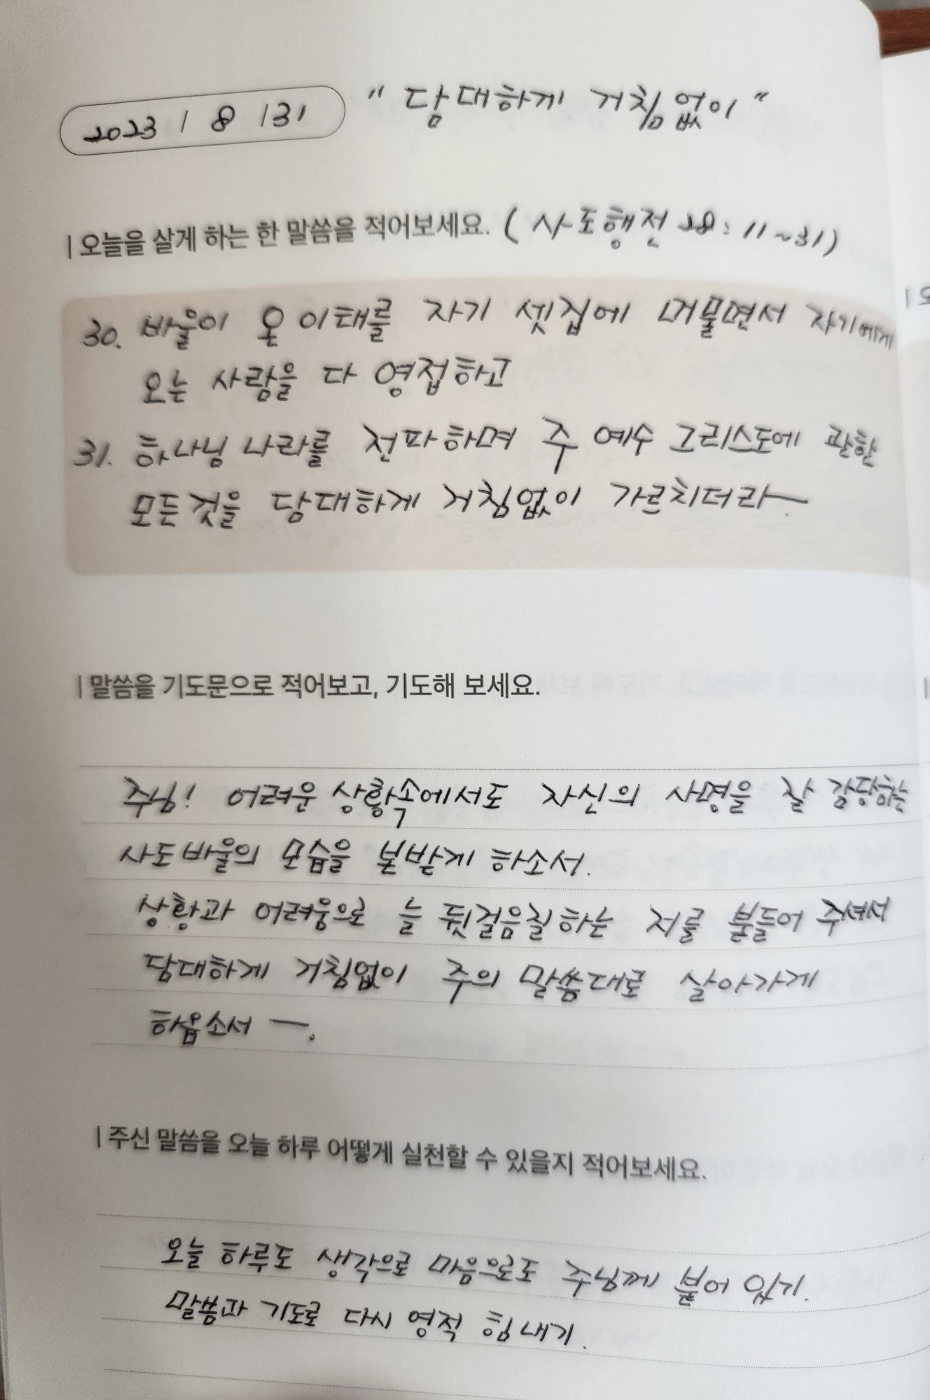 2023 / 8 / 31 " 담대하게 거침없이 "
| 오늘을 살게 하는 한 말씀을 적어보세요. ( 사도행전 28 : 11 ~ 31 )
30. 바울이 온 이태를 자기 셋집에 머물면서 자기에게
오는 사람을 다 영접하고
31. 하나님 나라를 전파하며 주 예수 그리스도에 관한
모든 것을 담대하게 거침없이 가르치더라ー.
| 말씀을 기도문으로 적어보고, 기도해 보세요.
주님! 어려운 상황속에서도 자신의 사명을 잘 감당하는
사도바울의 모습을 본받게 하소서.
상황과 어려움으로 늘 뒷걸음질하는 저를 붙들어 주셔서
담대하게 거침없이 주의 말씀대로 살아가게
하옵소서 ー.
| 주신 말씀을 오늘 하루 어떻게 실천할 수 있을지 적어보세요.
오늘 하루도 생각으로 마음으로도 주님께 붙어 있기.
말씀과 기도로 다시 영적 힘내기.